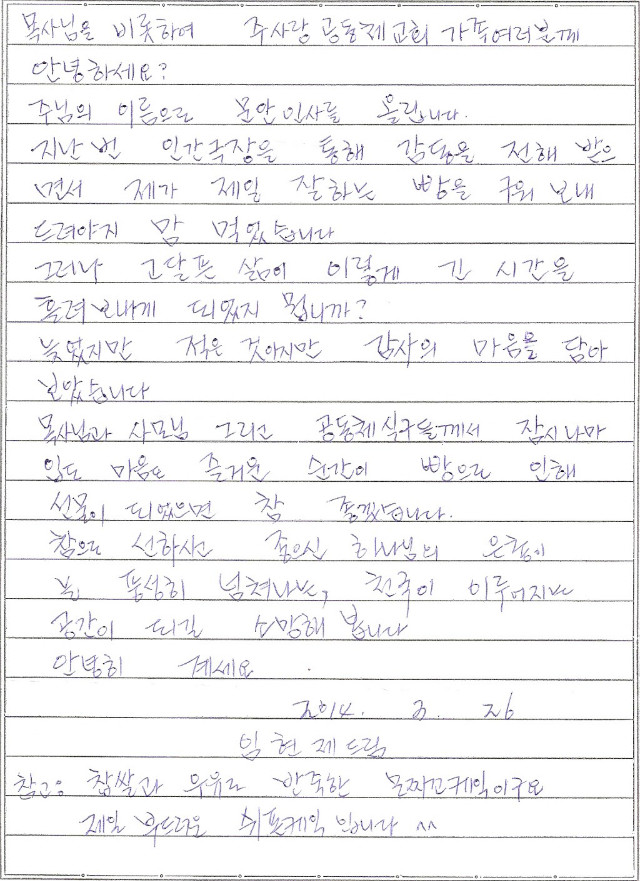 목사님을 비롯하여 주사랑 공동체교회 가족여러분께
안녕하세요?
주님의 이름으로 문안인사를 올립니다.
지난 번 인간극장을 통해 감동을 전해 받으
면서 제가 제일 잘하는 빵을 구워 보내
드려야지 맘 먹었습니다
그러나 고달픈 삶이 이렇게 긴 시간을
흘려보내게 되었지 뭡니까?
늦었지만 적은 것이지만 감사의 마음을 담아
보았습니다
목사님과 사모님 그리고 공동체식구들께서 잠시나마
입도 마음도 즐거운 순간이 빵으로 인해
선물이 되었으면 참 좋겠습니다.
참으로 선하시고 좋으신 하나님의 은총이
늘 풍성히 넘쳐나는, 천국이 이루어지는
공간이 되길 소망해 봅니다
안녕히 계세요.
2014. 3. 26
임현제드림
참고: 찹쌀과 우유로 반죽한 모찌꼬케익이구요
제일 부드러운 쉬폰케익 입니다 ^^